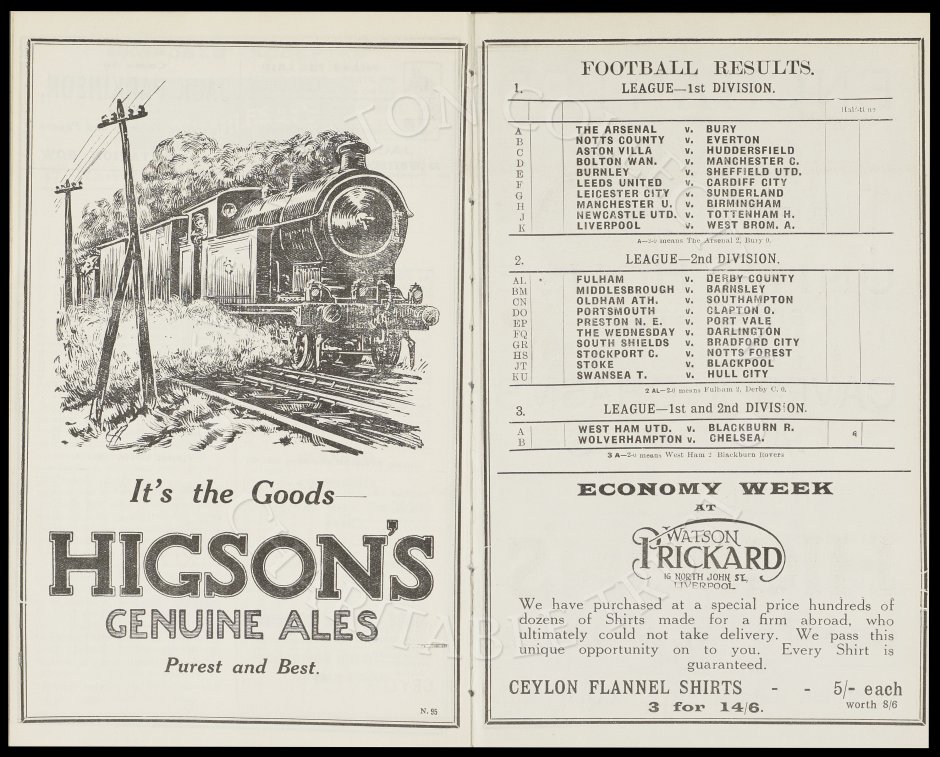 It's the Goods—
HIGSON'S
GENUINE ALES
Purest and Best.
N. 95
FOOTBALL RESULTS.
1. LEAGUE—1st DIVISION.
Half-time
A THE ARSENAL v. BURY
B NOTTS COUNTY v. EVERTON
C ASTON VILLA v. HUDDERSFIELD
D BOLTON WAN. v. MANCHESTER C.
E BURNLEY v. SHEFFIELD UTD.
F LEEDS UNITED v. CARDIFF CITY
G LEICESTER CITY v. SUNDERLAND
H MANCHESTER U. v. BIRMINGHAM
J NEWCASTLE UTD. v. TOTTENHAM H.
K LIVERPOOL v. WEST BROM. A.
A—2-0 means The Arsenal 2, Bury 0.
2. LEAGUE—2nd DIVISION.
AL FULHAM v. DERBY COUNTY
BM MIDDLESBROUGH v. BARNSLEY
CN OLDHAM ATH. v. SOUTHAMPTON
DO PORTSMOUTH v. CLAPTON O.
EP PRESTON N. E. v. PORT VALE
FQ THE WEDNESDAY v. DARLINGTON
GR SOUTH SHIELDS v. BRADFORD CITY
HS STOCKPORT C. v. NOTTS FOREST
JT STOKE v. BLACKPOOL
KU SWANSEA T. v. HULL CITY
2 AL—2-0 means Fulham 2, Derby C. 0.
3. LEAGUE—1st and 2nd DIVISION.
A WEST HAM UTD. v. BLACKBURN R.
B WOLVERHAMPTON v. CHELSEA.
3 A—2-0 means West Ham 2 Blackburn Rovers
ECONOMY WEEK
AT
WATSON
PRICKARD
16 NORTH JOHN ST,
LIVERPOOL
We have purchased at a special price hundreds of
dozens of Shirts made for a firm abroad, who
ultimately could not take delivery. We pass this
unique opportunity on to you. Every Shirt is
guaranteed.
CEYLON FLANNEL SHIRTS - - 5/- each
3 for 14/6. worth 8/6